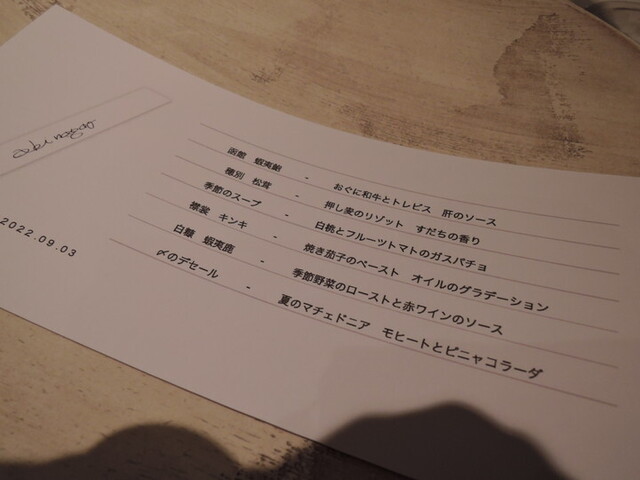 函館 蝦夷鮑 - おぐに和牛とトレビス 肝のソース
穂別 松茸 - 押し麦のリゾット すだちの香り
季節のスープ - 白桃とフルーツトマトのガスパチョ
襟裳 キンキ - 焼き茄子のペースト オイルのグラデーション
白糠 蝦夷鹿 - 季節野菜のローストと赤ワインのソース
〆のデセール - 夏のマチェドニア モヒートとピニャコラーダ
2022.09.03